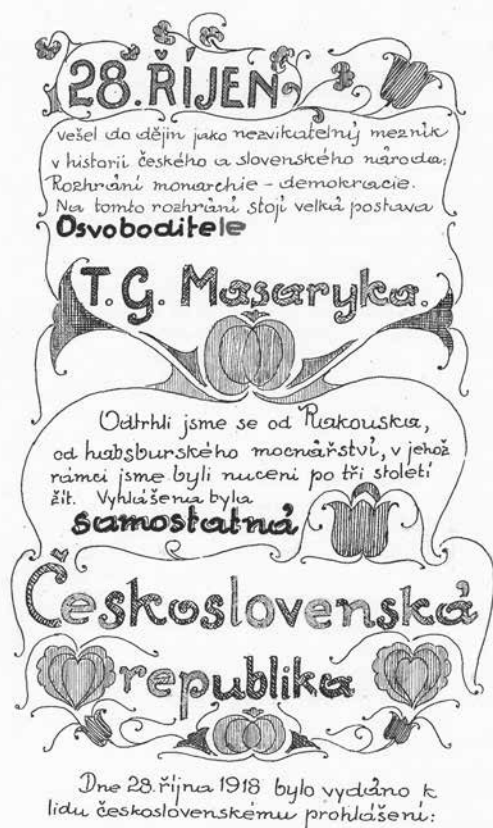 28. ŘÍJEN
vešel do dějin jako nezvikatelný mezník
v historii českého a slovenského národa:
Rozhrání monarchie - demokracie.
Na tomto rozhrání stojí velká postava
Osvoboditele
T. G. Masaryka.
Odtrhli jsme se od Rakouska,
od habsburského mocnářství, v jehož
rámci jsme byli nuceni po tři století
žít. Vyhlášena byla
samostatná
Československá
republika
Dne 28. října 1918 bylo vydáno k
lidu československému prohlášení: